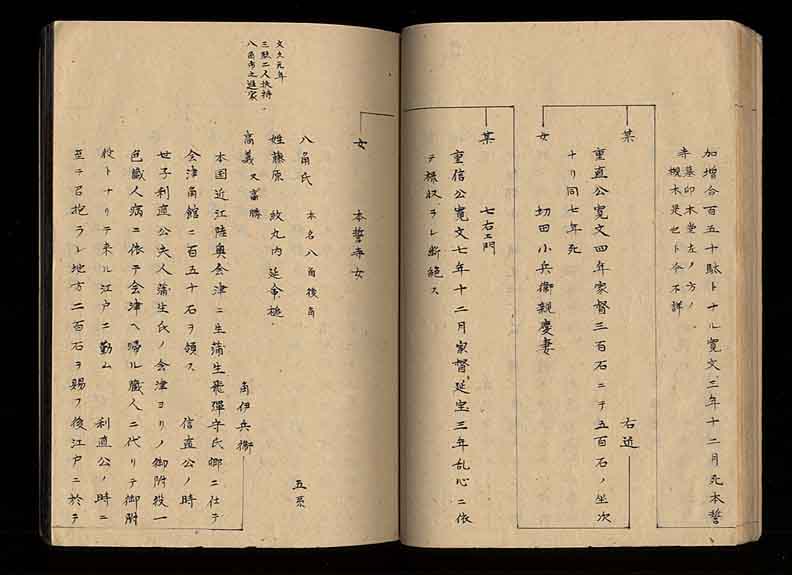 加増合百五十駄トナル寛文三年十二月死本誓
寺墓印木堂左ノ方ノ
槻木是也ト今不詳
右近
某
重直公寛文四年家督三百石ニテ五百石ノ坐次
ナリ同七年死
女
切田小兵衛親慶妻
某
七右エ門
重信公寛文七年十二月家督延宝三年乱心ニ依
テ禄収ラレ断絶ス
女
本誓寺女
文久元年
三駄二人扶持
八角
八角氏
本名八角後角
五系
姓藤原
紋丸内延命槌
角伊兵衛
高義又高勝
本国近江陸奥会津ニ生蒲生飛弾守氏郷ニ仕テ
会津角館ニ百五十石ヲ領ス
信直公ノ時
世子利直公夫人蒲生氏ノ会津ヨリノ御附役一
色蔵人病ニ依テ会津ヘ帰ル蔵人ニ代リテ御附
役トナリテ来ル江戸ニ勤ム
利直公ノ時ニ
至テ召抱ラレ地方二百石ヲ賜フ後江戸ニ於テ